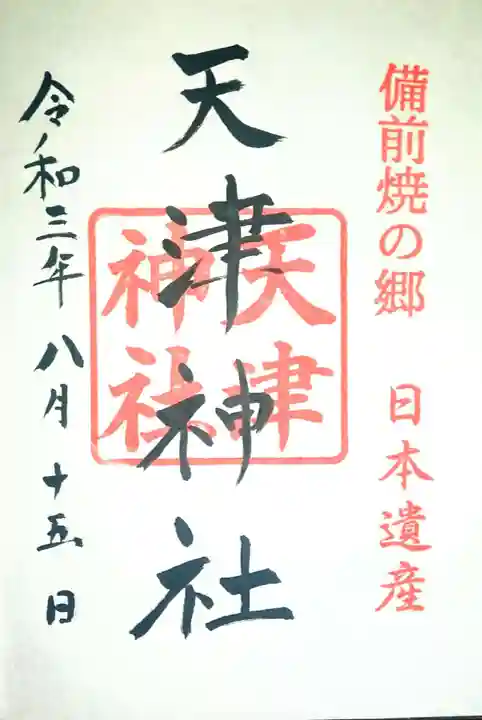 備前焼の郷 日本遺産
天津神社
天津
神社
令和三年八月十五日